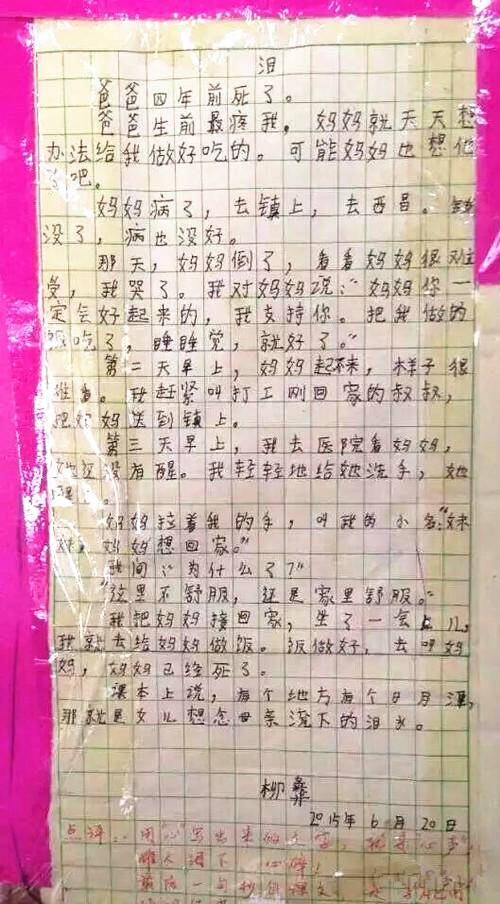 泪
爸爸四年前死了。
爸爸生前最疼我,妈妈就天天想
办法给我做好吃的。可能妈妈也想他
了吧。
妈妈病了,去镇上,去西昌。钱
没了,病也没好。
那天,妈妈倒了,看看妈妈很难
受,我哭了。我对妈妈说:“妈妈你一
定会好起来的,我支持你。把我做的
饭吃了,睡睡觉,就好了。”
第二天早上,妈妈起不来,样子很
难看。我赶紧叫打工刚回家的叔叔,
把妈妈送到镇上。
第三天早上,我去医院看妈妈,
她还没有醒。我轻轻地给她洗手,她
醒了。
妈妈拉着我的手,叫我的小名:“妹
妹,妈妈想回家。”
我问:“为什么了?”
“这里不舒服,还是家里舒服。”
我把妈妈接回家,坐了一会儿,
我就去给妈妈做饭。饭做好,去叫妈
妈,妈妈已经死了。
课本上说,有个地方有个日月潭,
那就是女儿想念母亲流下的泪水。
柳彝
2015年6月20日
点评:用“心”写出来的文字,
心碎,
最后一句